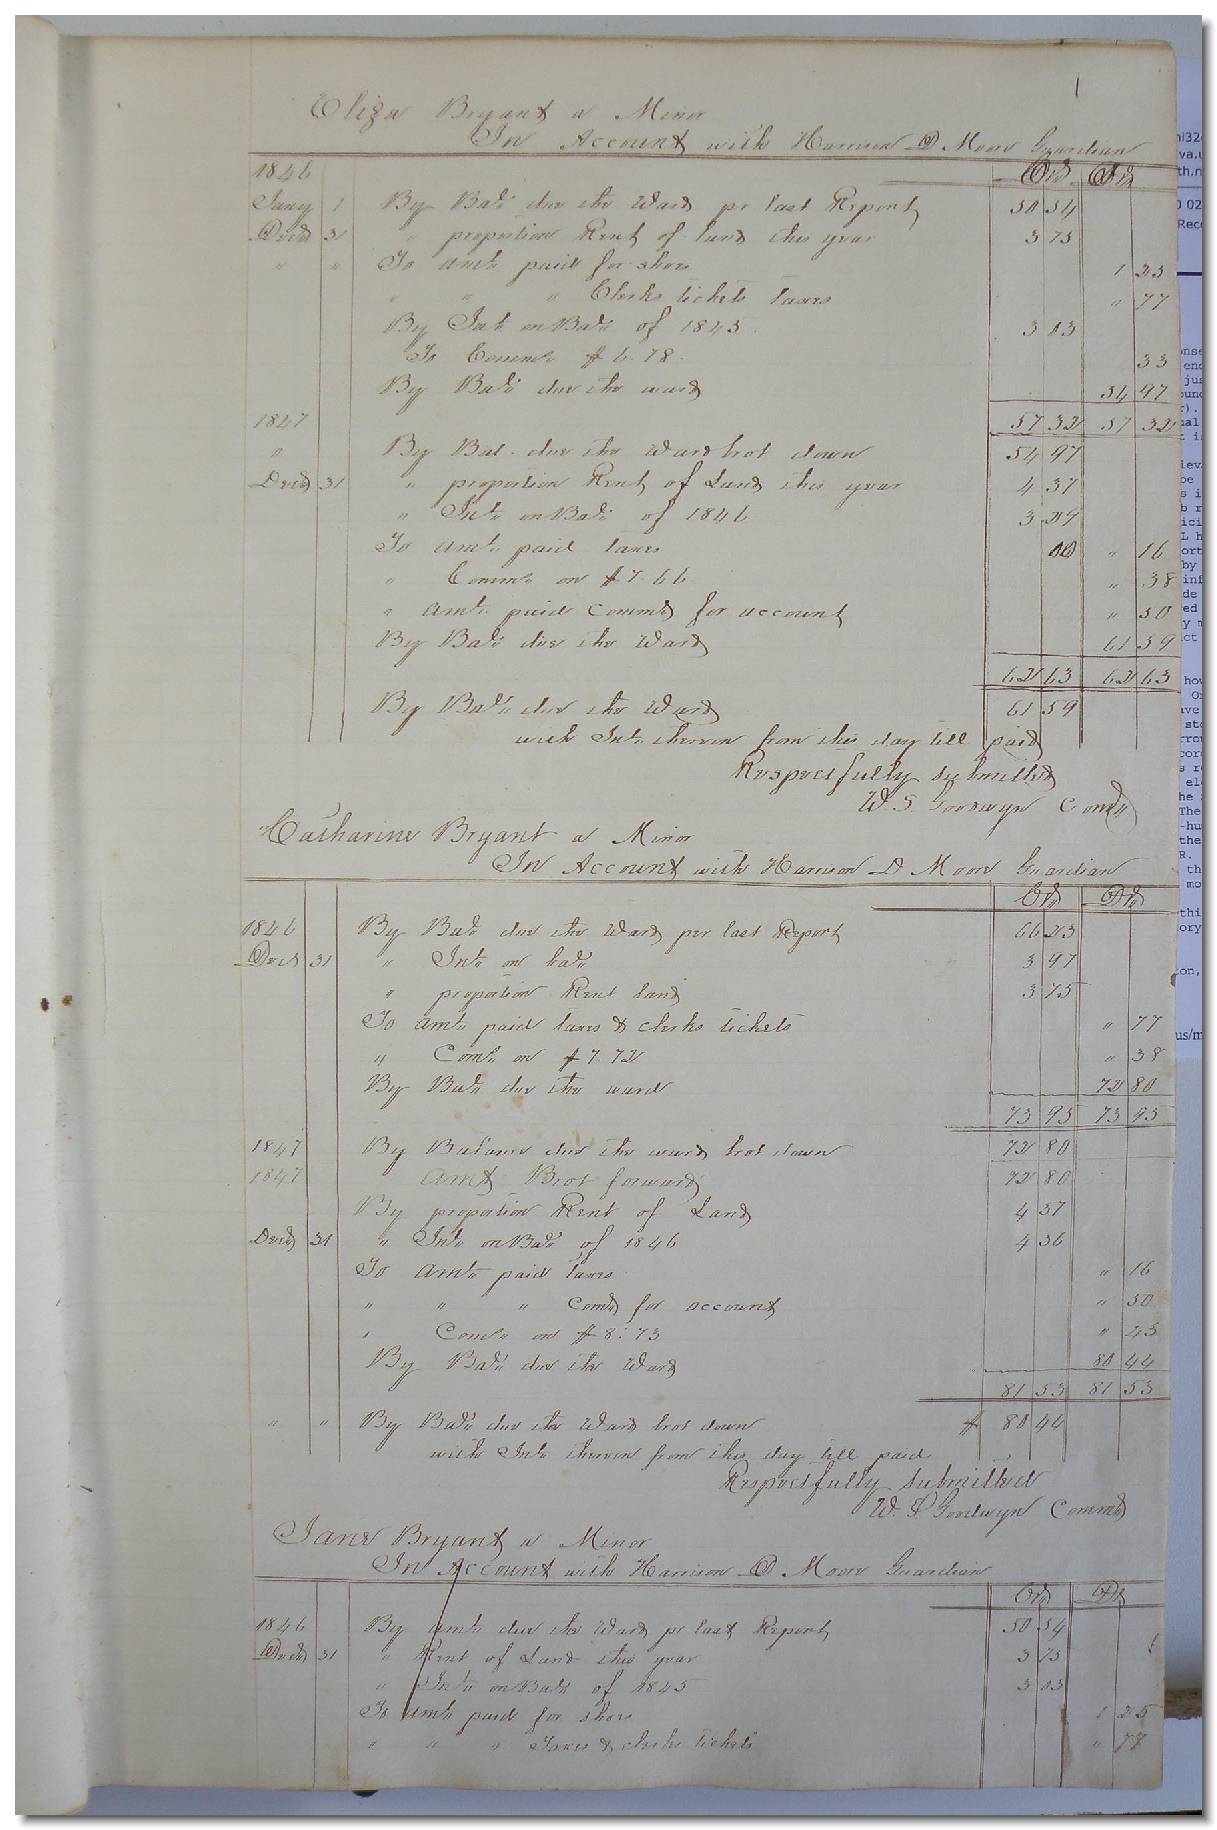 Eliza Bryant a Minor
In Account with Harrison D Moor Guardian
1846 Crs Drs
Jany 1 By Bale due the Ward pr last Report 50 54
Decr 31 " proportion Rent of land this year 3 75
" " To amt paid for shoes 1 25
" " " Clerks tickets taxes " 77
By Int on Bale of 1845 3 03
To Comms $6.78 33
By Bale due the ward 54 97
1847 57 32 57 32
" By Bal. due the Ward brot down 54 97
Decr 31 " proportion Rent of Land this year 4 37
" Int on Bale of 1846 3 29
To amt paid taxes " 16
" Comms on $7 66 " 38
" amt paid Commr for account " 50
By Bale due the Ward 61 59
62 63 62 63
By Bale due the Ward 61 59
with Int thereon from this day till paid
Respectfully submitted
W. S Goodwyn Comr
Catharine Bryant a Minor
In Account with Harrison D Moor Guardian
Crs Drs
1846 By Bale due the Ward per last Report 66 23
Decr 31 " Int on bale 3 97
" proportion Rent land 3 75
To amt paid taxes & clerks tickets " 77
" Coms on $7.72 " 38
By Bale due the ward 72 80
73 95 73 95
1847 By Balance due the ward brot down 72 80
1847 amt Brot forward 72 80
By proportion Rent of Land 4 37
Decr 31 " Int on Bale of 1846 4 36
To amt paid taxes " 16
" " " Comr for account " 50
" Coms on $8.73 " 43
By Bale due the Ward 80 44
81 53 81 53
" " By Bale due the Ward brot down $ 80 44
with Int thereon from this day till paid
Respectfully submitted
W. S Goodwyn Commr
Jane Bryant a Minor
In Account with Harrison D Moor Guardian
Crs Drs
1846 By amt due the Ward pr last Report 50 54
Decr 31 " Rent of Land this year 3 75
" Int on Bale of 1845 3 03
To amt paid for shoes 1 25
" " " Taxes & clerks tickets " 77